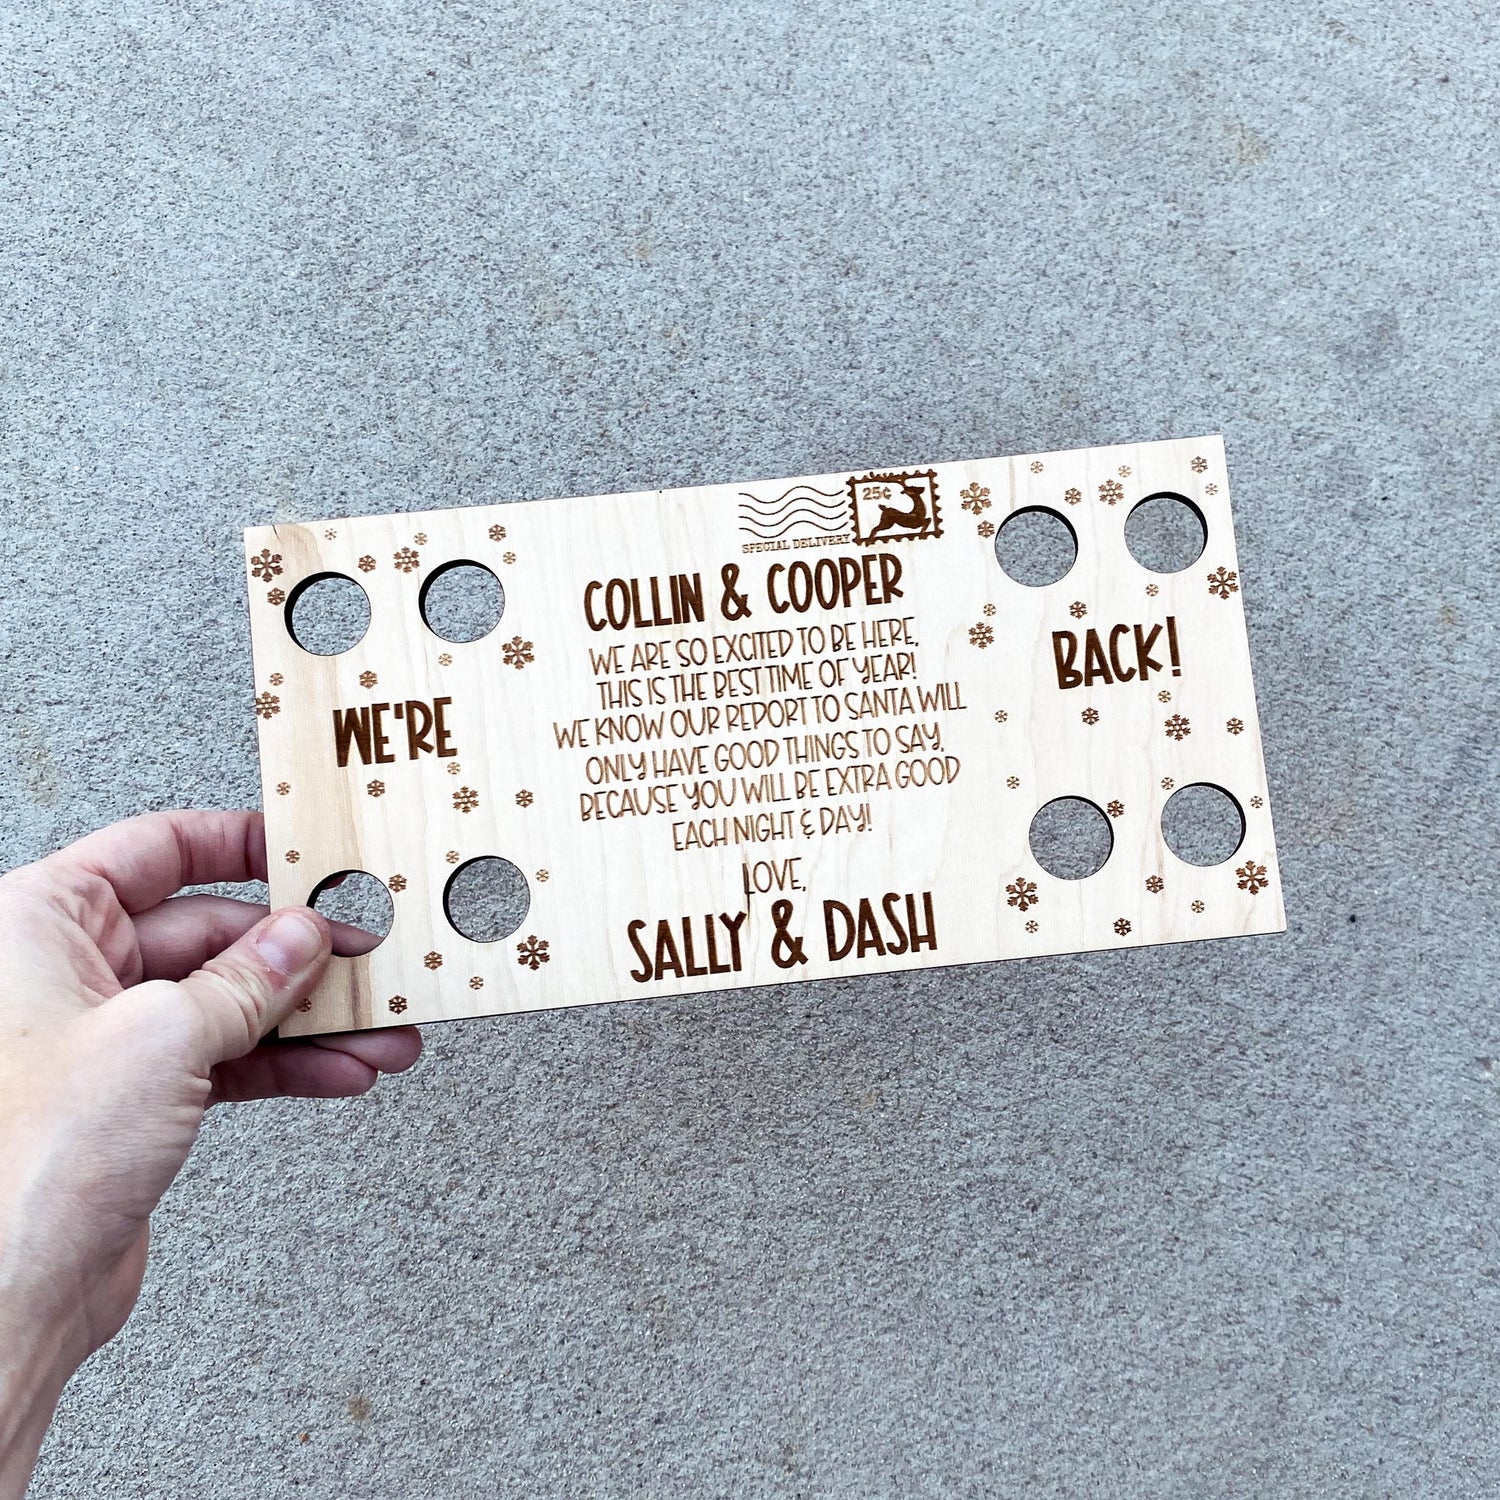 25¢
SPECIAL DELIVERY
COLLIN & COOPER
WE ARE SO EXCITED TO BE HERE,
THIS IS THE BEST TIME OF YEAR!
WE KNOW OUR REPORT TO SANTA WILL
ONLY HAVE GOOD THINGS TO SAY,
BECAUSE YOU WILL BE EXTRA GOOD
EACH NIGHT & DAY!
LOVE,
SALLY & DASH
WE'RE
BACK!